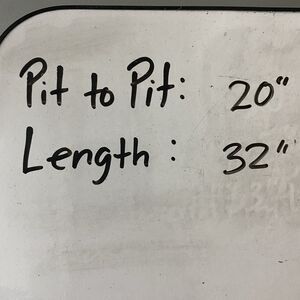 Pit to Pit: 20"
Length: 32"